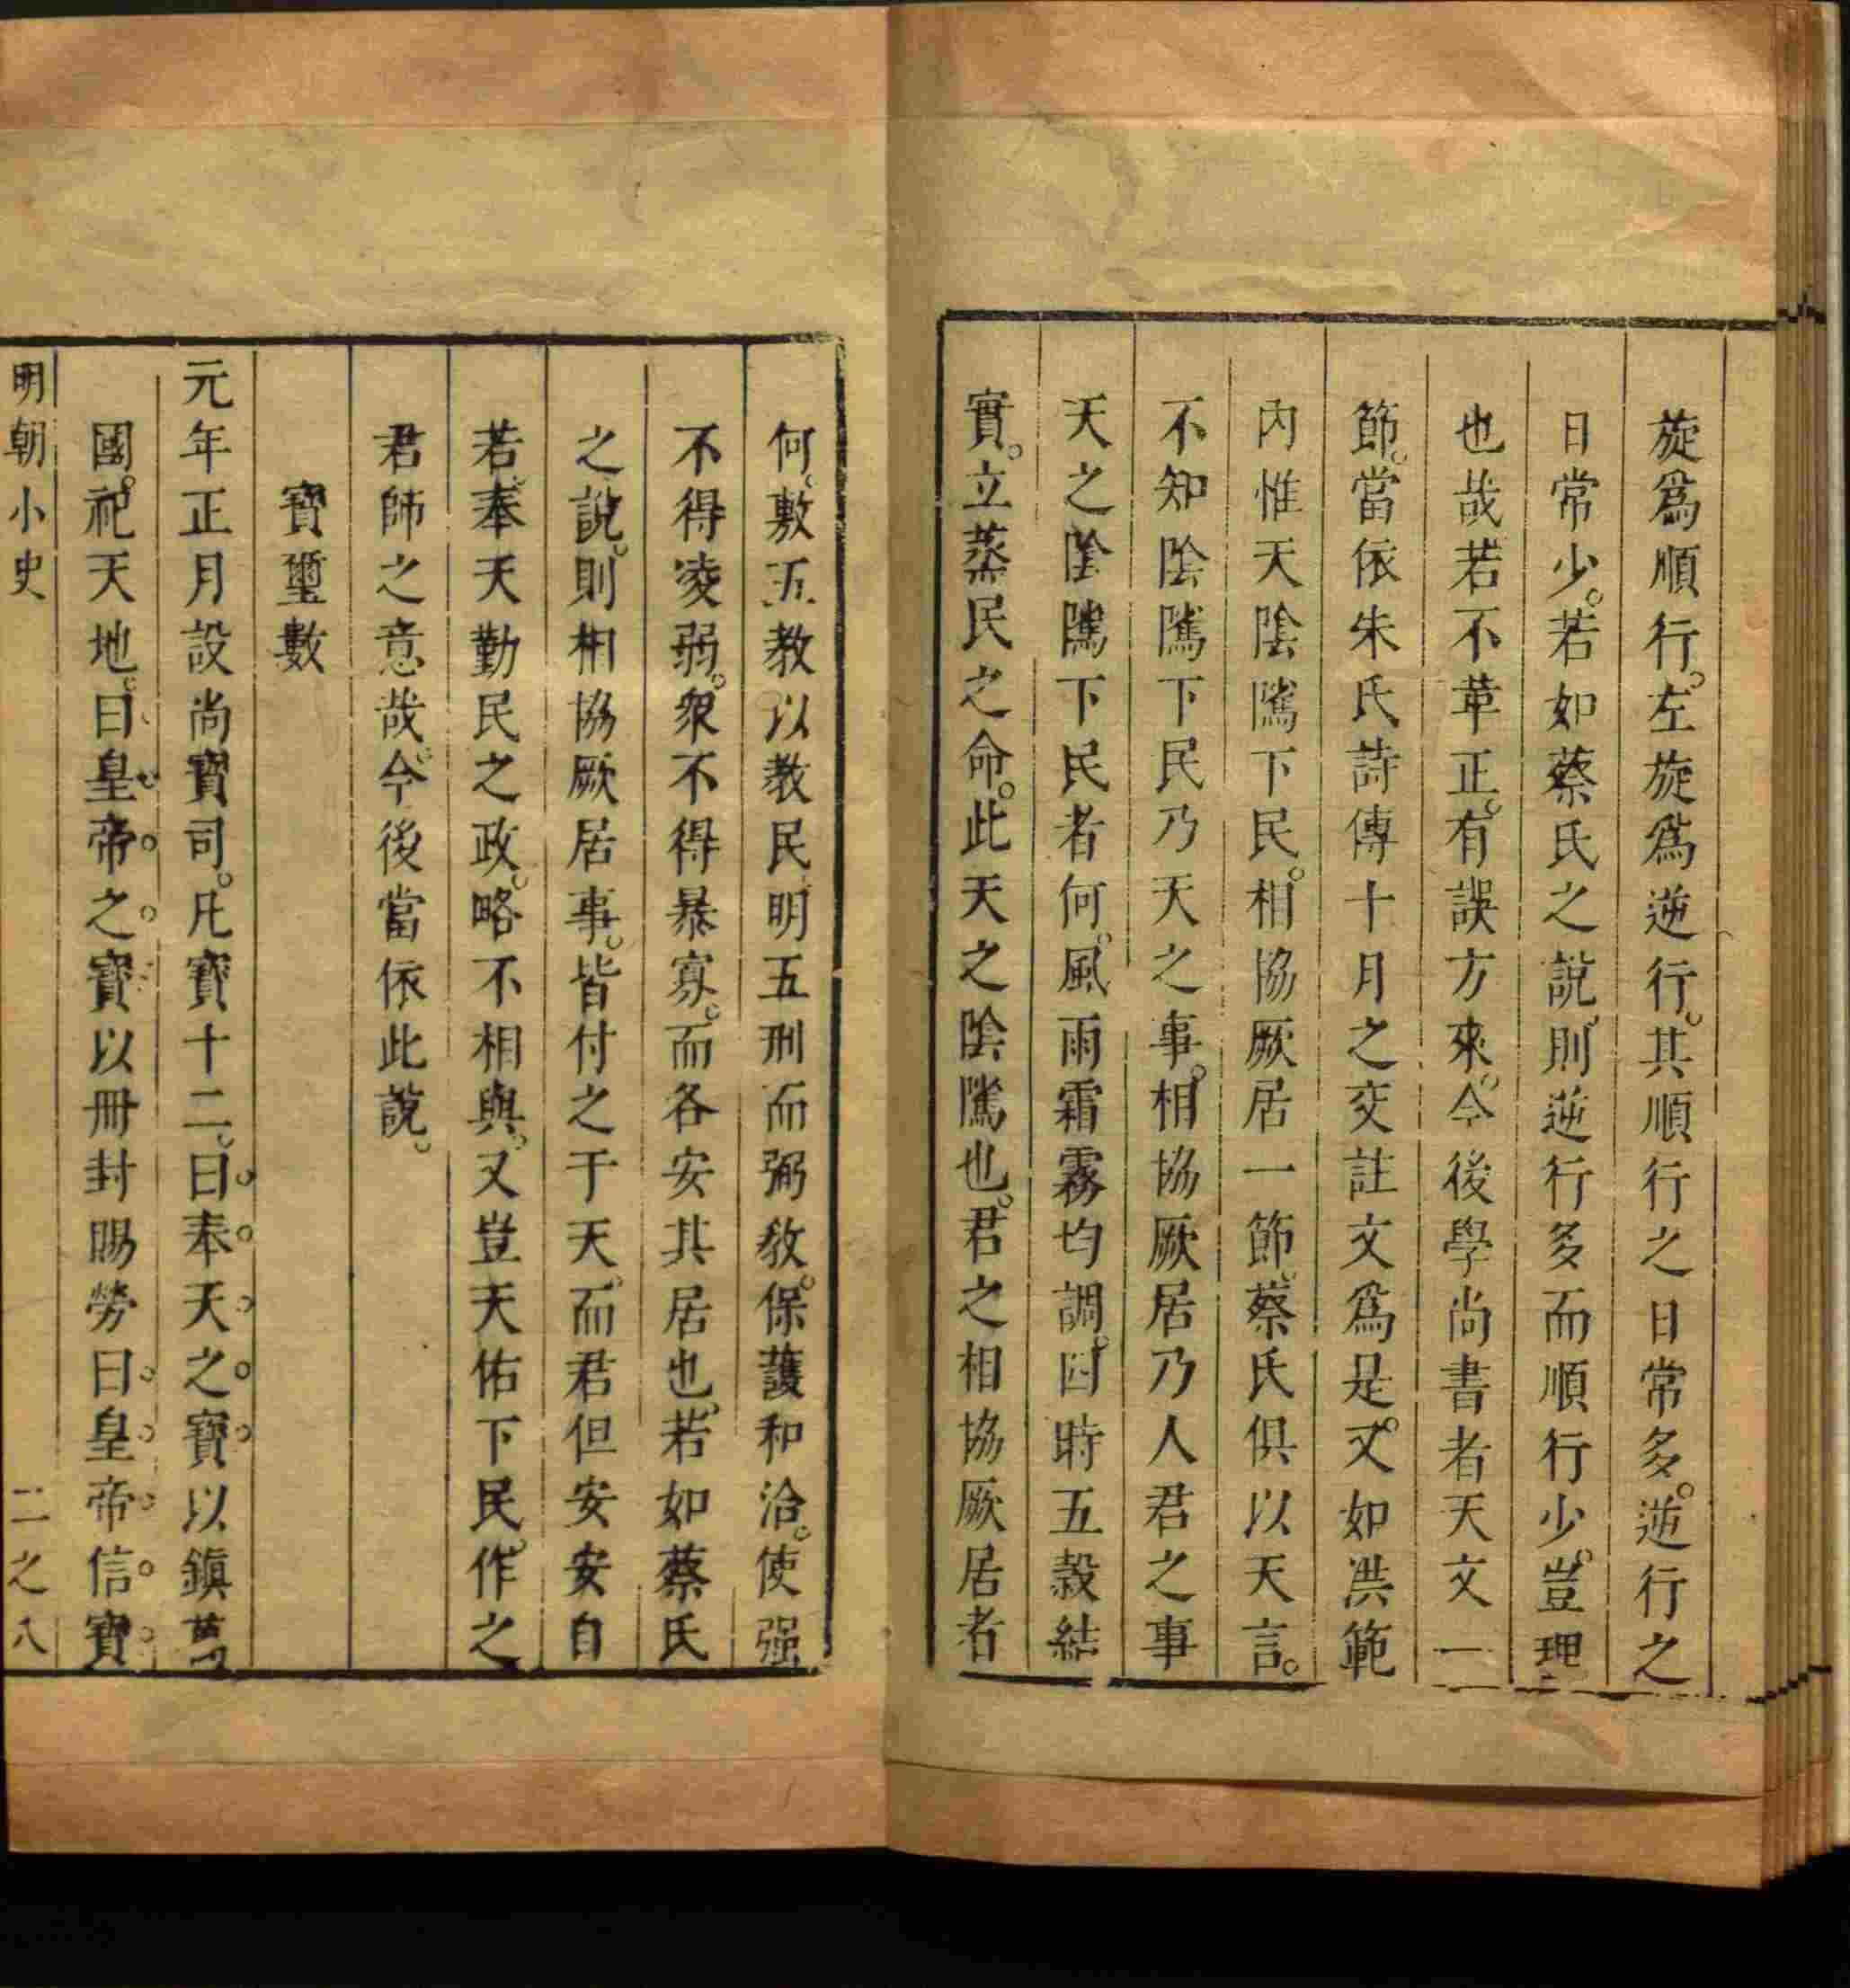 旋爲順行。左旋爲逆行。其順行之日常多。逆行之
日常少。若如蔡氏之說。則逆行多而順行少。豈理
也哉。若不革正。有誤方來。今後學尚書者天文一
節。當依朱氏詩傳十月之交註文爲是。又如洪範
內惟天陰隲下民。相協厥居一節。蔡氏俱以天言。
不知陰隲下民乃天之事。相協厥居乃人君之事
天之陰隲下民者何。風雨霜霧均調。因時五穀結
實。立蒸民之命。此天之陰隲也。君之相協厥居者
何。敷五教以教民。明五刑而弼教。保護和洽。使强
不得凌弱。衆不得暴寡。而各安其居也。若如蔡氏
之說。則相協厥居事。皆付之于天。而君但安安自
若。奉天勤民之政。略不相與。又豈天佑下民。作之
君師之意哉。今後當依此說。
寶璽數
元年正月設尚寶司。凡寶十二。曰奉天之寶以鎮萬
國。祀天地。曰皇帝之寶以冊封賜勞曰皇帝信寶
明朝小史 二之八